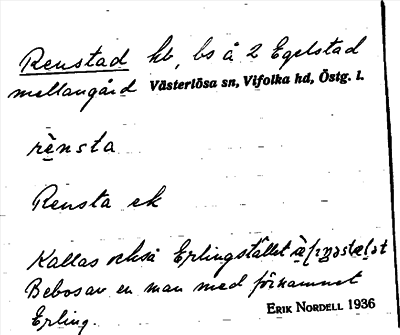 Renstad hb, bs å 2 Egelstad
mellangård Västerlösa sn, Vifolka hd, Östg. l.
rènsta
Rensta ek
Kallas också Erlingstället
Bebos av en man med förnamnet
Erling. ERIK NORDELL 1936